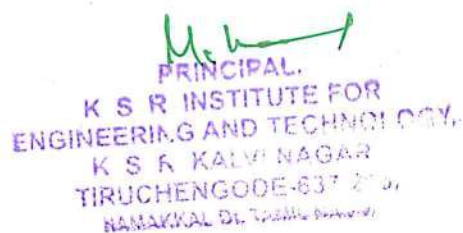 PRINCIPAL.
K S R INSTITUTE FOR
ENGINEERING AND TECHNOLOGY,
K S R KALVI NAGAR
TIRUCHENGODE-637
NAMAKKAL Dt,